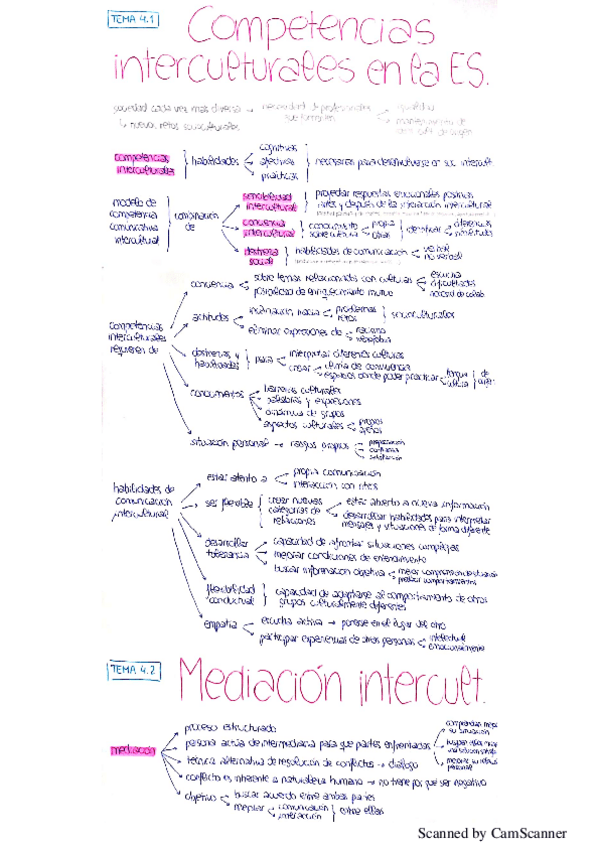 TEMA 4.1
Competencias
interculturales en la ES.
sociedad cada vez más diversa → necesidad de profesionales que fomenten
igualdad
↳ nuevos retos socioculturales
competencias interculturales
habilidades
cognitivas
afectivas
prácticas
necesarias para desenvolverse en soc. intercult.
modelo de competencia comunicativa intercultural
combinación de
sensibilidad intercultural
proyectar respuestas emocionales positivas
antes y después de la interacción intercultural
conciencia intercultural
conocimiento sobre cultura
propia
otras
identificar
diferencias
similitudes
destreza social
habilidades de comunicación
verbal
no verbal
competencias interculturales requieren de
conciencia
sobre temas relacionados con culturas
escucha
dificultades
posibilidad de enriquecimiento mutuo
actitudes
inclinación hacia
problemas
retos
socioculturales
eliminar expresiones de
racismo
xenofobia
destrezas y habilidades
para
interpretar diferentes culturas
crear
clima de convivencia
espacios donde poder practicar
lengua
cultura
conocimientos
barreras culturales
palabras y expresiones
dinámica de grupos
aspectos culturales
propios
ajenos
situación personal → rasgos propios
habilidades de comunicación intercultural
estar atento a
propia comunicación
interacción con otros
ser flexible
crear nuevas categorías de relaciones
estar abierto a nueva información
desarrollar habilidades para interpretar
mensajes y situaciones de forma diferente
desarrollar tolerancia
capacidad de afrontar situaciones complejas
mejorar condiciones de entendimiento
buscar información objetiva
flexibilidad conductual
capacidad de adaptarse al comportamiento de otros
grupos culturalmente diferentes
empatía
escucha activa → ponerse en el lugar del otro
participar experiencias de otras personas
intelectual
emocionalmente
TEMA 4.2
Mediación intercult.
mediación
proceso estructurado
persona actúa de intermediaria para que partes enfrentadas
comprendan mejor su situación
técnica alternativa de resolución de conflictos → diálogo
conflicto es inherente a naturaleza humana → no tiene por qué ser negativo
objetivo
buscar acuerdo entre ambas partes
mejorar
comunicación
interacción
entre ellas
Scanned by CamScanner